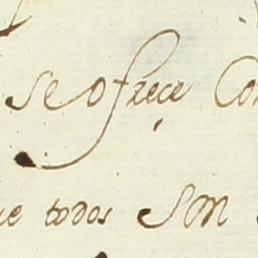 Se ofreçe Con
ue todos Son